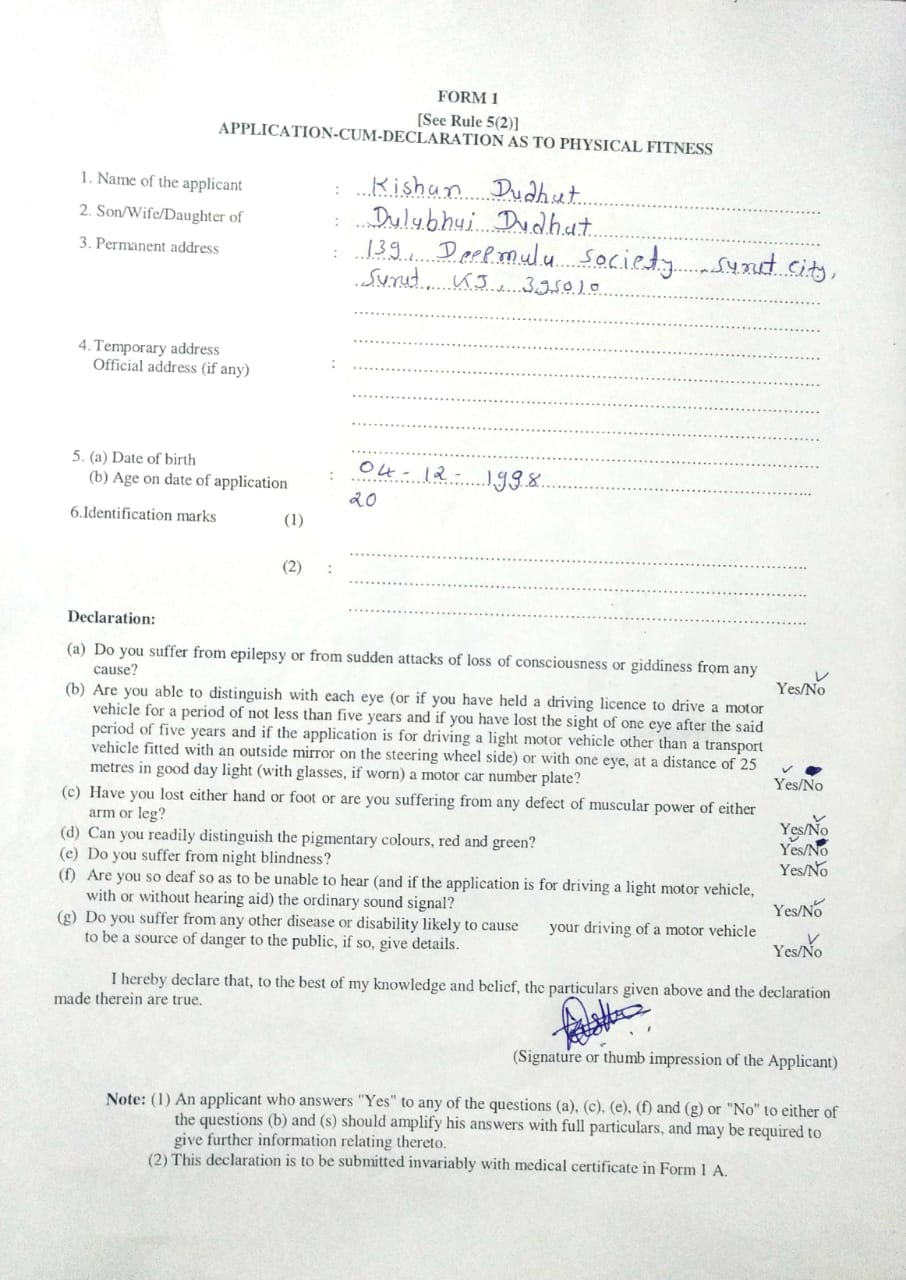 FORM 1
[See Rule 5(2)]
APPLICATION-CUM-DECLARATION AS TO PHYSICAL FITNESS
1. Name of the applicant : Kishan Dudhat
2. Son/Wife/Daughter of : Dulabhai Dudhat
3. Permanent address : 139, Deepmala Society, Surat city,
Surat, KJ, 395010
4. Temporary address
Official address (if any) :
5. (a) Date of birth
(b) Age on date of application : 04-12-1998
20
6.Identification marks (1)
(2) :
Declaration:
(a) Do you suffer from epilepsy or from sudden attacks of loss of consciousness or giddiness from any
cause? Yes/No
(b) Are you able to distinguish with each eye (or if you have held a driving licence to drive a motor
vehicle for a period of not less than five years and if you have lost the sight of one eye after the said
period of five years and if the application is for driving a light motor vehicle other than a transport
vehicle fitted with an outside mirror on the steering wheel side) or with one eye, at a distance of 25
metres in good day light (with glasses, if worn) a motor car number plate? Yes/No
(c) Have you lost either hand or foot or are you suffering from any defect of muscular power of either
arm or leg? Yes/No
(d) Can you readily distinguish the pigmentary colours, red and green? Yes/No
(e) Do you suffer from night blindness? Yes/No
(f) Are you so deaf so as to be unable to hear (and if the application is for driving a light motor vehicle,
with or without hearing aid) the ordinary sound signal? Yes/No
(g) Do you suffer from any other disease or disability likely to cause your driving of a motor vehicle
to be a source of danger to the public, if so, give details. Yes/No
I hereby declare that, to the best of my knowledge and belief, the particulars given above and the declaration
made therein are true.
(Signature or thumb impression of the Applicant)
Note: (1) An applicant who answers "Yes" to any of the questions (a), (c), (e), (f) and (g) or "No" to either of
the questions (b) and (s) should amplify his answers with full particulars, and may be required to
give further information relating thereto.
(2) This declaration is to be submitted invariably with medical certificate in Form 1 A.